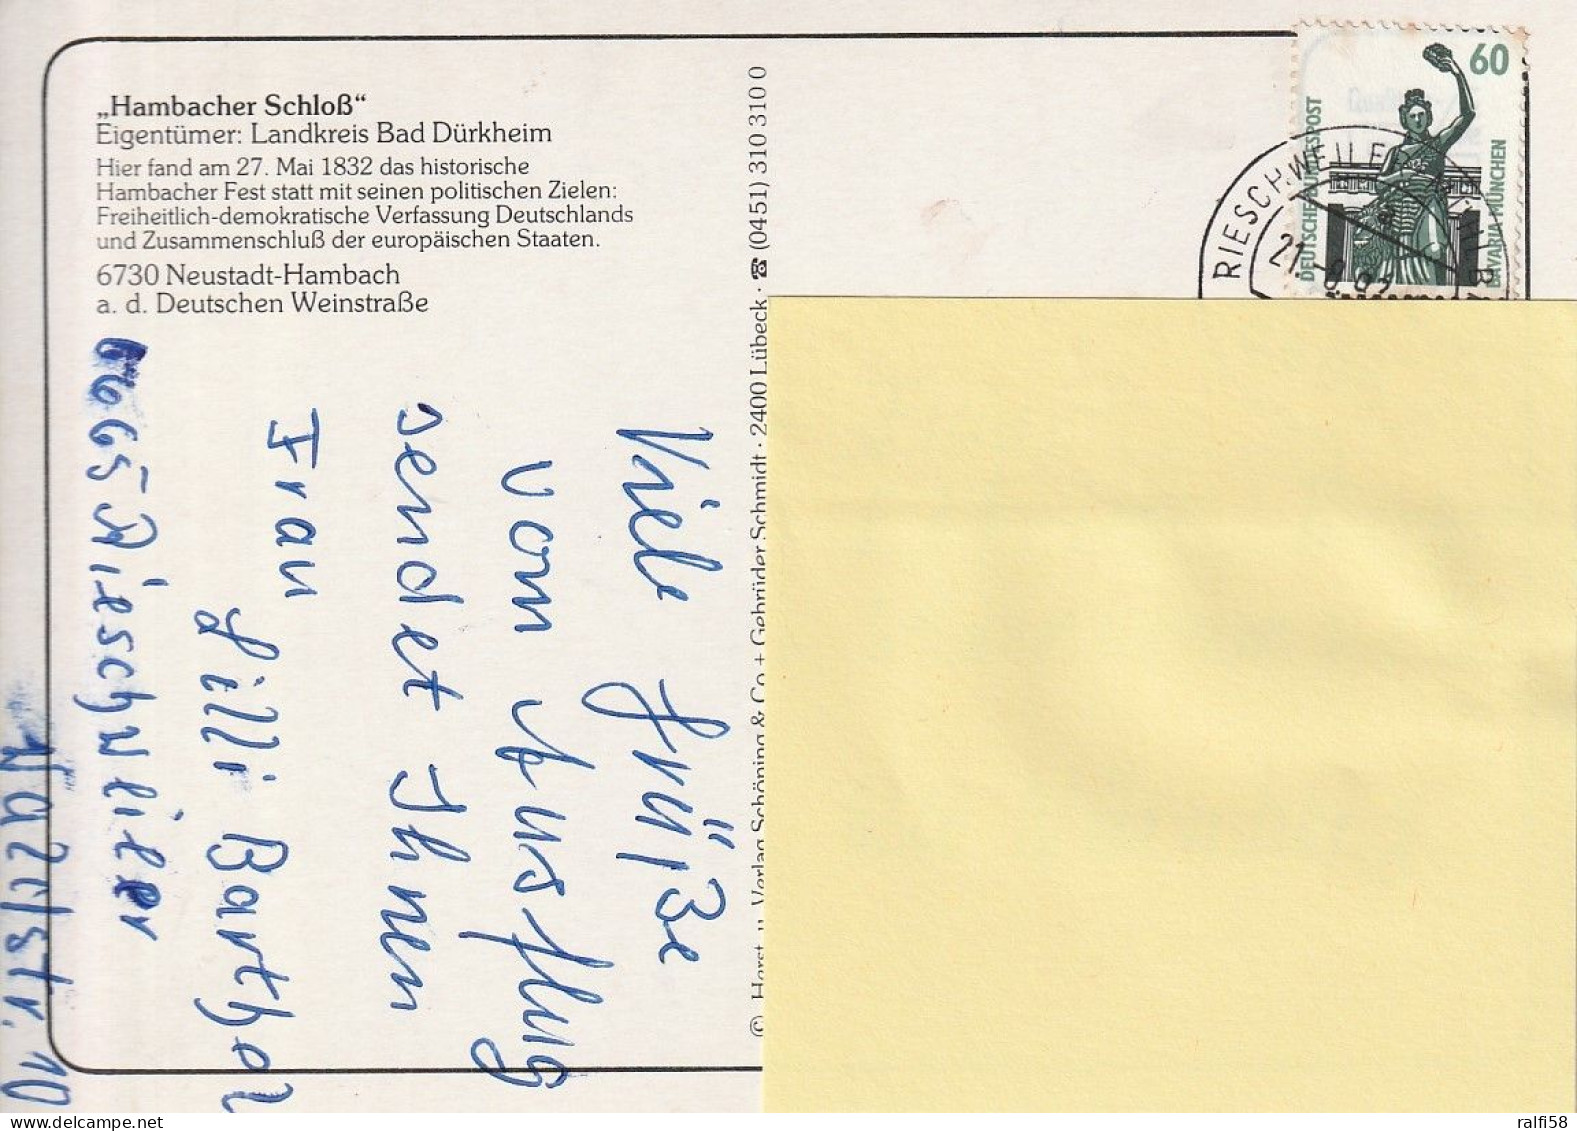 „Hambacher Schloß“
Eigentümer: Landkreis Bad Dürkheim
Hier fand am 27. Mai 1832 das historische
Hambacher Fest statt mit seinen politischen Zielen:
Freiheitlich-demokratische Verfassung Deutschlands
und Zusammenschluß der europäischen Staaten.
6730 Neustadt-Hambach
a. d. Deutschen Weinstraße
Viele Grüße
vom Ausflug
sendet Ihnen
Frau
Lilli Barthol
6665 Rieschweiler
10
© Horst u. Verlag Schöning & Co + Gebrüder Schmidt · 2400 Lübeck · ☎ (0451) 310 310 0
60
DEUTSCHE BUNDESPOST
BAVARIA MÜNCHEN
RIESCHWEILER
21.-8.
ralfi58